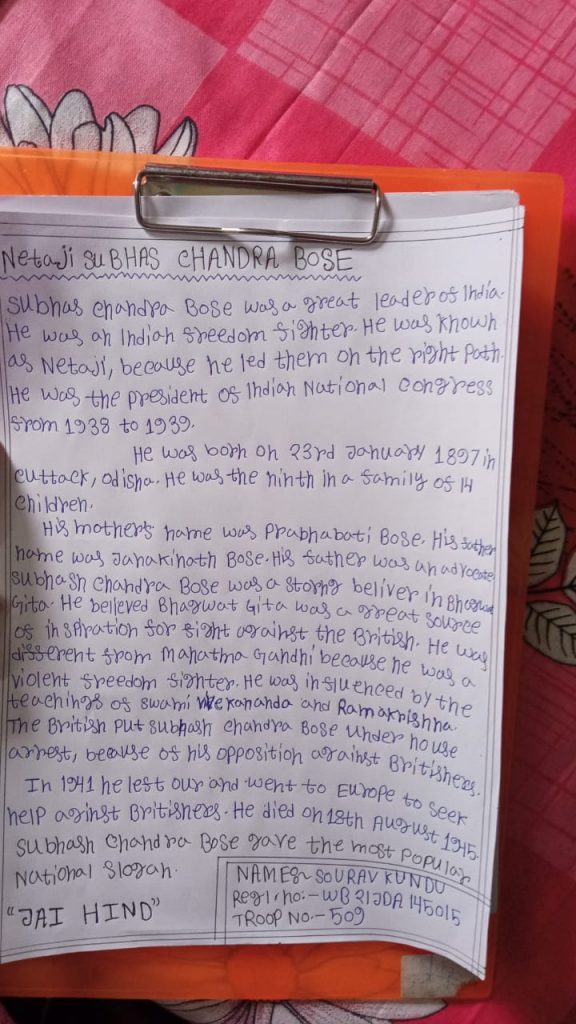 Netaji SUBHAS CHANDRA BOSE
Subhas Chandra Bose was a great leader of India.
He was an Indian freedom fighter. He was known
as Netaji, because he led them on the right path.
He was the president of Indian National Congress
from 1938 to 1939.
He was born on 23rd January 1897 in
cuttack, odisha. He was the ninth in a family of 14
children.
His mother's name was Prabhabati Bose. His father
name was Janakinath Bose. His father was an advocate
Subhash Chandra Bose was a storng beliver in Bhagwat
Gita. He believed Bhagwat Gita was a great source
of inspiration for fight against the British. He was
different from Mahatma Gandhi because he was a
violent freedom fighter. He was influenced by the
teachings of swami Vvekananda and Ramakrishna.
The British put subhash chandra Bose under house
arrest, because of his opposition against Britishers.
In 1941 he left our and went to Europe to seek
help aginst Britishers. He died on 18th August 1945.
Subhash Chandra Bose gave the most popular
National Slogan.
"JAI HIND"
NAME:- SOURAV KUNDU
Regl. no:- WB21JDA145015
TROOP NO:- 509